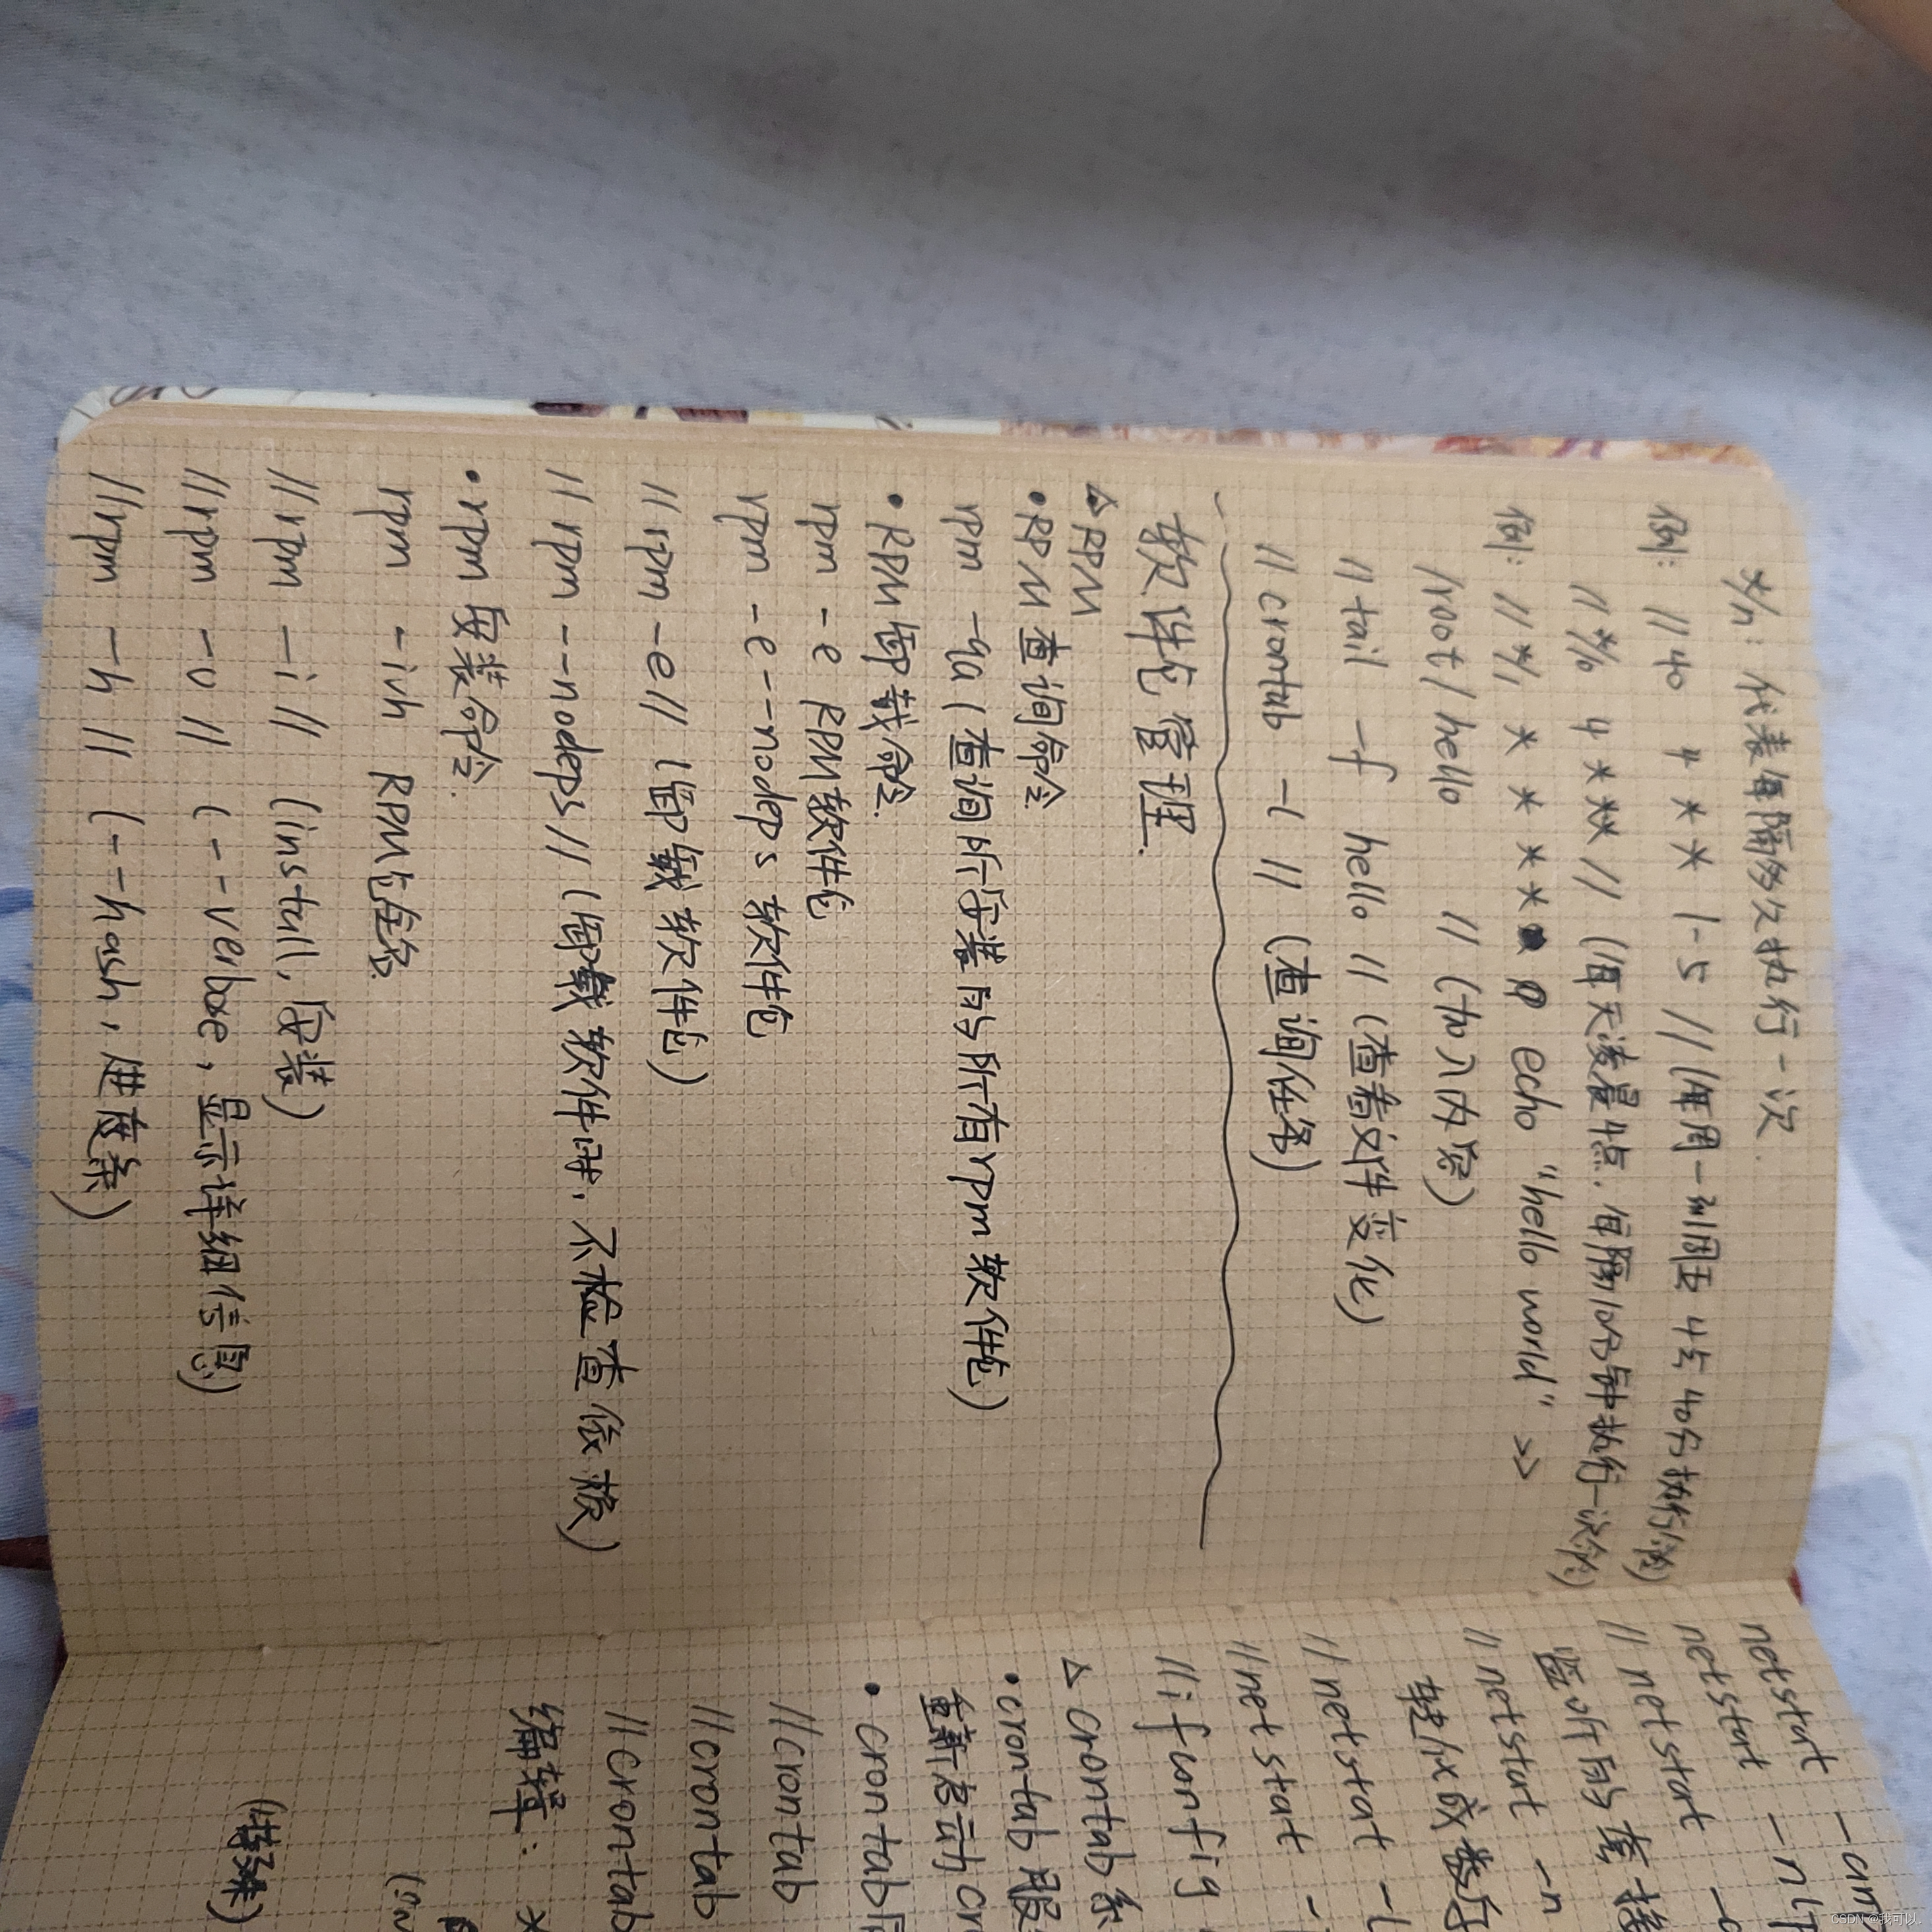 */n：代表每隔多久执行一次.
例： // 40 4 * * 1-5 // (每周一到周五 4点 40分执行
// */10 4 * * * // (每天凌晨4点，每隔10分钟执行一次
例： // */1 * * * * echo "hello world" >>
/root/hello // (加入内容)
// tail -f hello // (查看文件变化)
// crontab -l // (查询任务)
软件包管理.
△ RPM
• RPM 查询命令
rpm -qa (查询所安装的所有rpm 软件包)
• RPM 卸载命令.
rpm -e RPM软件包
rpm -e --nodeps 软件包
// rpm -e // (卸载软件包)
// rpm --nodeps // (卸载软件时，不检查依赖)
• rpm 安装命令.
rpm -ivh RPM包全名
// rpm -i // (install，安装)
// rpm -v // (--verbose，显示详细信息)
// rpm -h // (--hash，进度条)
netstat -an
netstat -nlt
// netstart
监听的
// netstart -n
// netstat
// netstart
// ifunfig
△ crontab 系
• crontab 服
重新启动 cr
• crontab
// crontab
// crontab
// crontab
编辑：*
CSDN @我可以